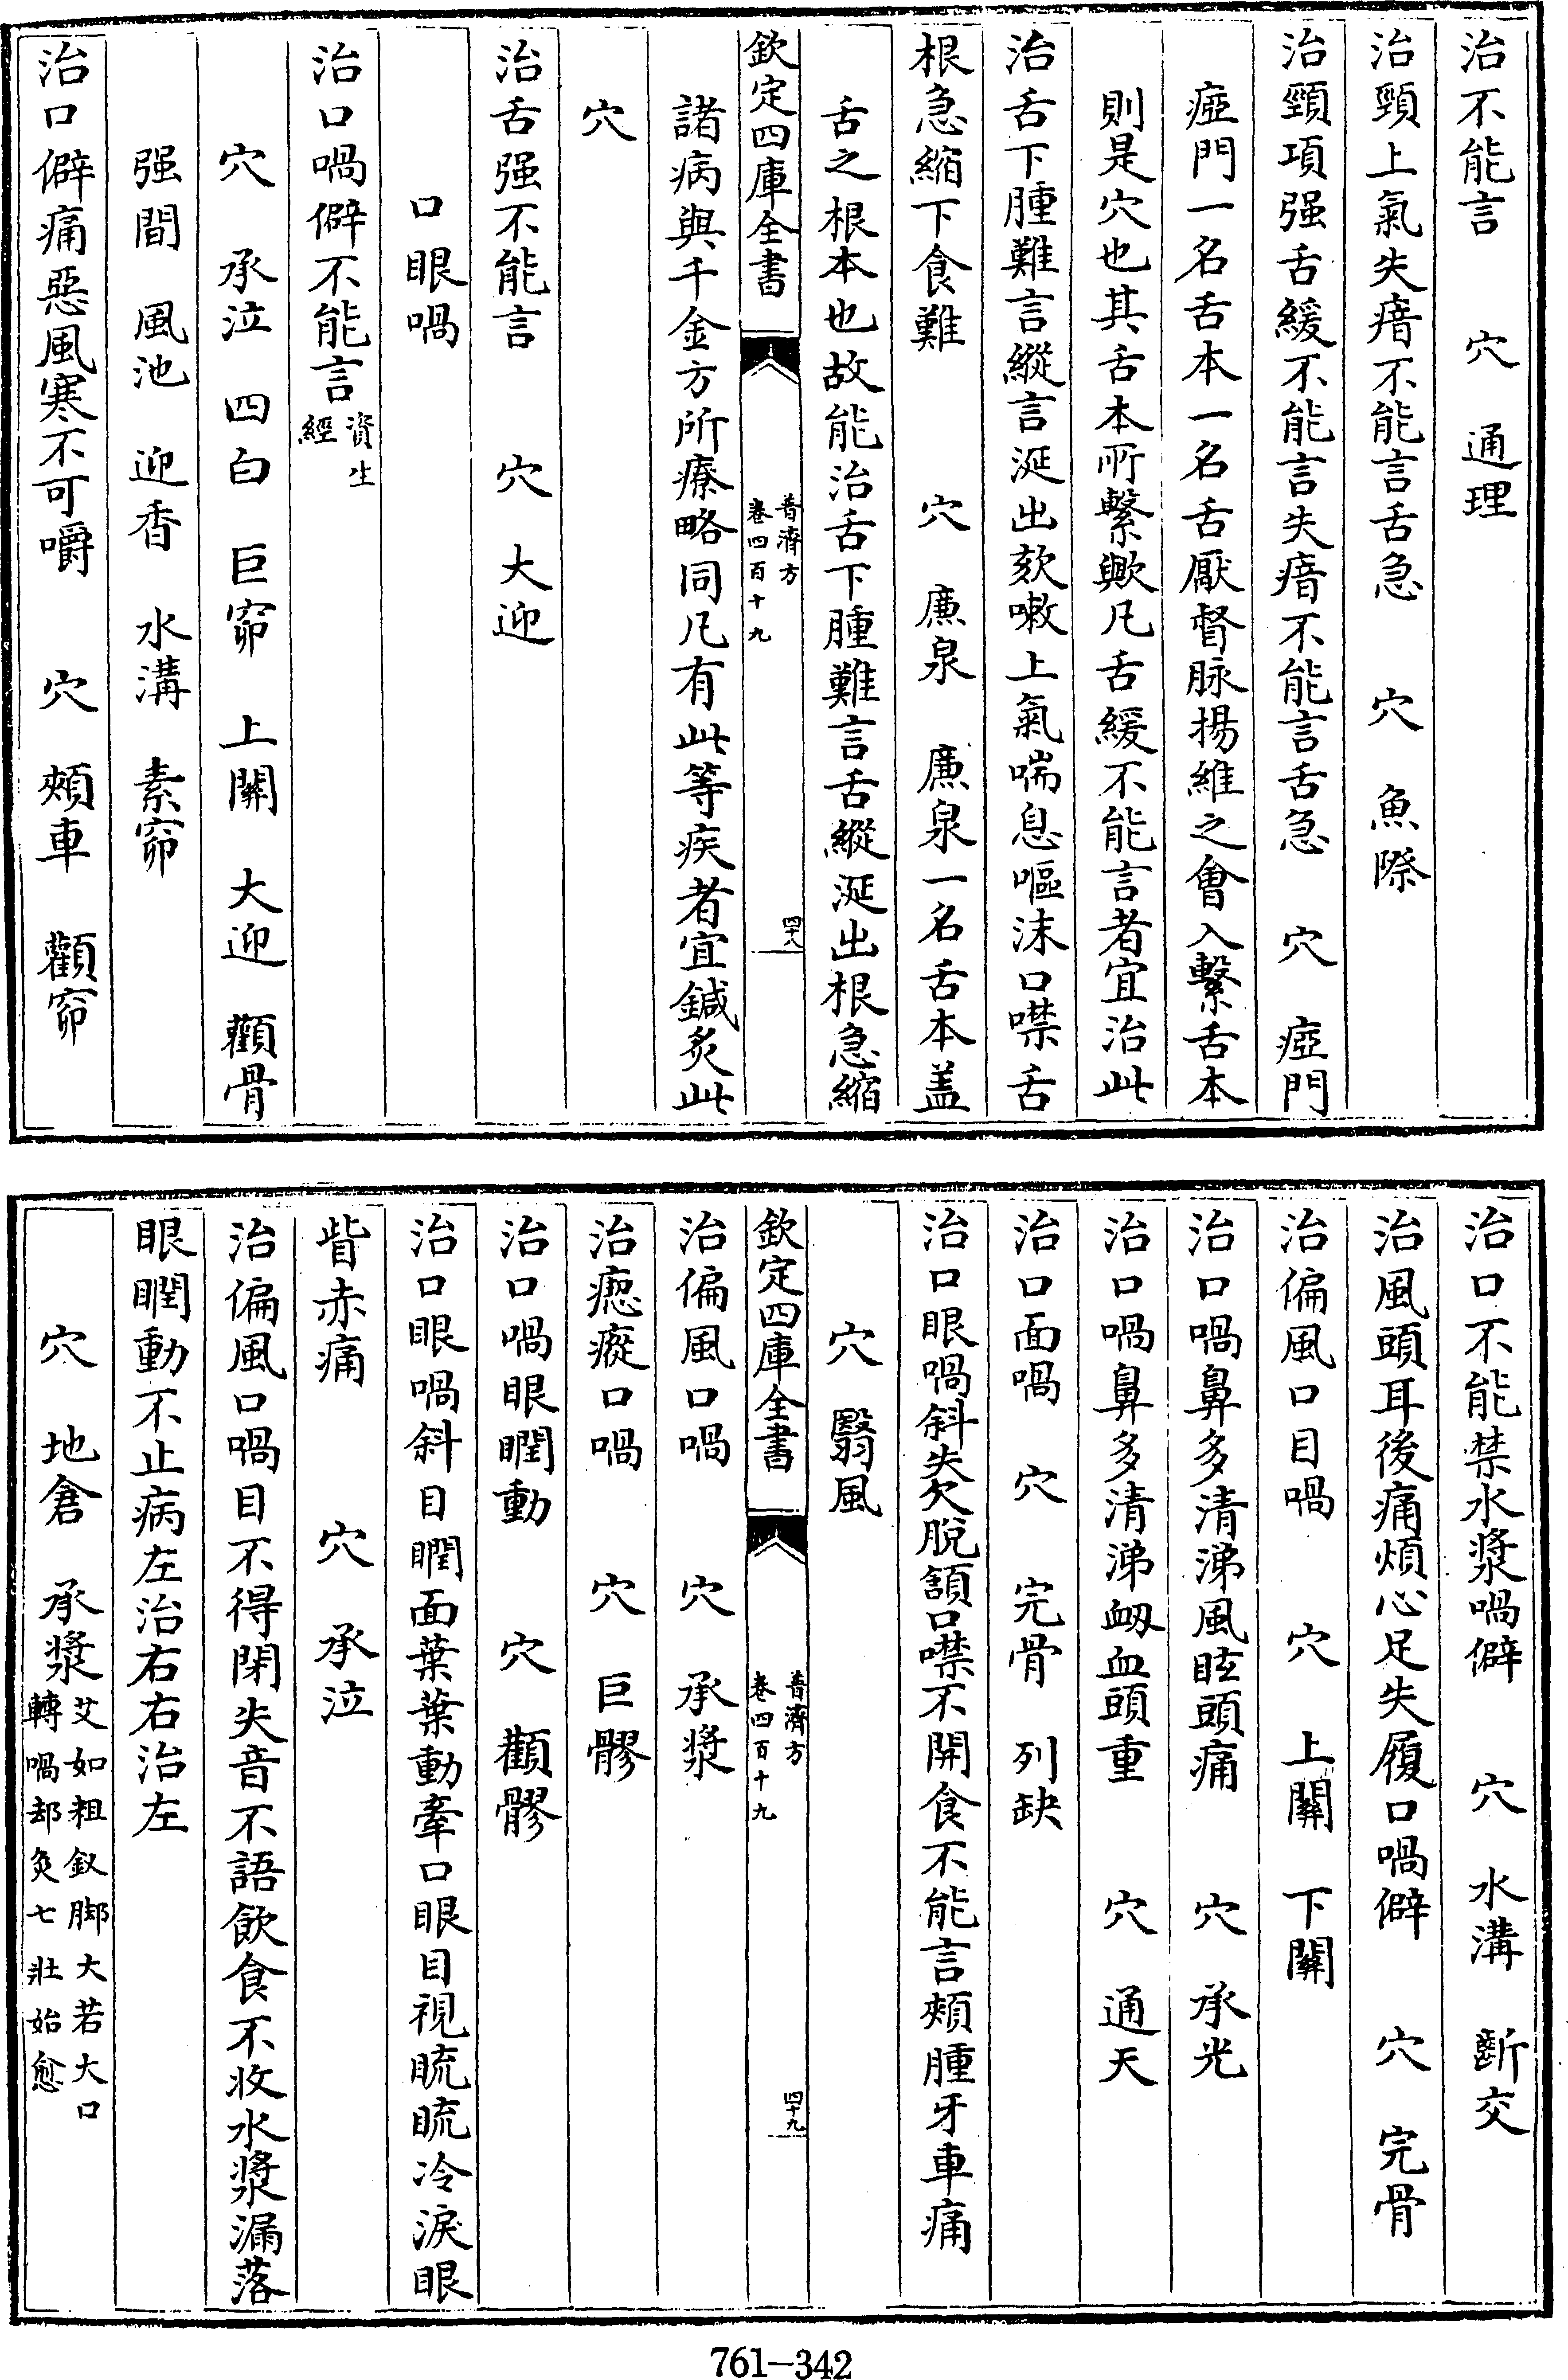 治不能言　穴　通理
治頸上氣失瘖不能言舌急　穴　魚際
治頸項强舌緩不能言失瘖不能言舌急　穴　瘂門
瘂門一名舌本一名舌厭督脉揚維之會入繫舌本
則是穴也其舌本所繫歟凡舌緩不能言者宜治此
治舌下腫難言縱言涎出欬嗽上氣喘息嘔沫口噤舌
根急縮下食難　穴　廉泉　廉泉一名舌本盖
舌之根本也故能治舌下腫難言舌縱涎出根急縮
欽定四庫全書　普濟方　卷四百十九　四十八
諸病與千金方所療略同凡有此等疾者宜鍼灸此
穴
治舌强不能言　穴　大迎
口眼喎
治口喎僻不能言資生經
穴　承泣　四白　巨窌　上關　大迎　顴骨
强間　風池　迎香　水溝　素窌
治口僻痛惡風寒不可嚼　穴　頰車　顴窌
治口不能禁水漿喎僻　穴　水溝　齗交
治風頭耳後痛煩心足失履口喎僻　穴　完骨
治偏風口目喎　穴　上關　下關
治口喎鼻多清涕風眩頭痛　穴　承光
治口喎鼻多清涕衂血頭重　穴　通天
治口面喎　穴　完骨　列缺
治口眼喎斜失欠脫頷口噤不開食不能言頰腫牙車痛
穴　翳風
欽定四庫全書　普濟方　卷四百十九　四十九
治偏風口喎　穴　承漿
治瘛瘲口喎　穴　巨髎
治口喎眼瞤動　穴　顴髎
治口眼喎斜目瞤面葉葉動牽口眼目視䀮䀮冷淚眼
眥赤痛　穴　承泣
治偏風口喎目不得閉失音不語飲食不收水漿漏落
眼瞤動不止病左治右右治左
穴　地倉　承漿艾如粗釵脚大若大口轉喎却灸七壯始愈
761-342